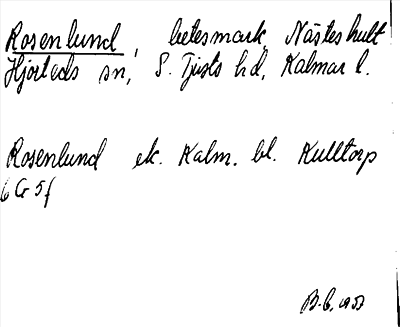 Rosenlund, betesmark, Nästeshult
Hjorteds sn, S. Tjusts hd, Kalmar l.
Rosenlund ek. Kalm. bl. Kulltorp
6 G 5 f
B.G. 1953